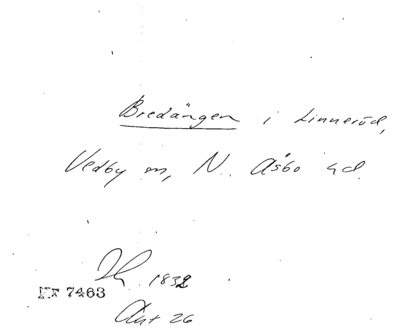 Bredängen i Linneröd,
Vedby sn, N. Åsbo hd.
1832
NR 7463
Akt 26